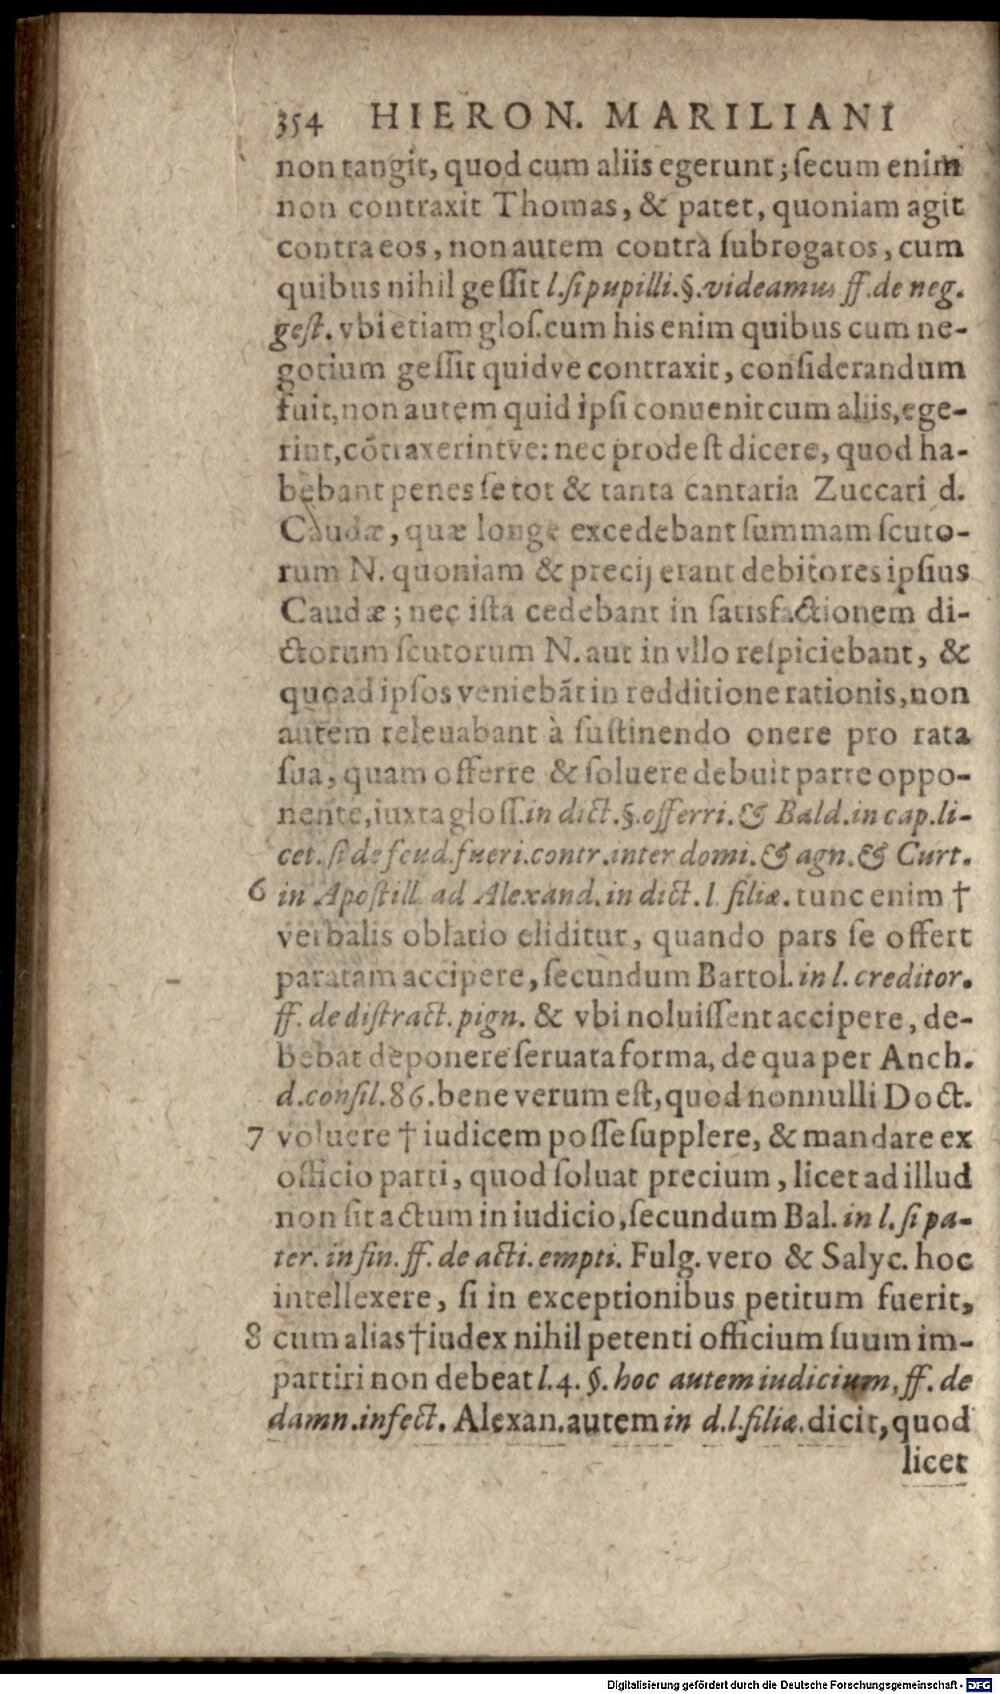 354 HIERON. MARILIANI
non tangit, quod cum aliis egerunt; ſecum enim
non contraxit Thomas, & patet, quoniam agit
contra eos, non autem contra ſubrogatos, cum
quibus nihil geſſit l.ſi pupilli.§.videamus ff.de neg.
geſt. vbi etiam gloſ.cum his enim quibus cum ne-
gotium geſſit quidve contraxit, conſiderandum
fuit, non autem quid ipſi conuenit cum aliis, ege-
rint, cõtraxerintve: nec prodeſt dicere, quod ha-
bebant penes ſe tot & tanta cantaria Zuccari d.
Caudæ, quæ longe excedebant ſummam ſcuto-
rum N. quoniam & precij erant debitores ipſius
Caudæ; nec iſta cedebant in ſatisfactionem di-
ctorum ſcutorum N. aut in vllo reſpiciebant, &
quoad ipſos veniebãt in redditione rationis, non
autem releuabant à ſuſtinendo onere pro rata
ſua, quam offerre & ſoluere debuit parte oppo-
nente, iuxta gloſſ.in dict.§.offerri.& Bald.in cap.li-
cet. ſi de feud.fueri.contr.inter domi.& agn.& Curt.
6 in Apoſtill. ad Alexand. in dict. l. filiæ. tunc enim †
verbalis oblatio eliditur, quando pars ſe offert
paratam accipere, ſecundum Bartol. in l. creditor.
ff. de diſtract. pign. & vbi noluiſſent accipere, de-
bebat deponere ſeruata forma, de qua per Anch.
d.conſil.86. bene verum eſt, quod nonnulli Doct.
7 voluere † iudicem poſſe ſupplere, & mandare ex
officio parti, quod ſoluat precium, licet ad illud
non ſit actum in iudicio, ſecundum Bal. in l. ſi pa-
ter. in fin. ff. de acti. empti. Fulg. vero & Salyc. hoc
intellexere, ſi in exceptionibus petitum fuerit,
8 cum alias † iudex nihil petenti officium ſuum im-
partiri non debeat l.4. §. hoc autem iudicium, ff. de
damn.infect. Alexan. autem in d.l.filiæ. dicit, quod
licet
Digitalisierung gefördert durch die Deutsche Forschungsgemeinschaft - DFG